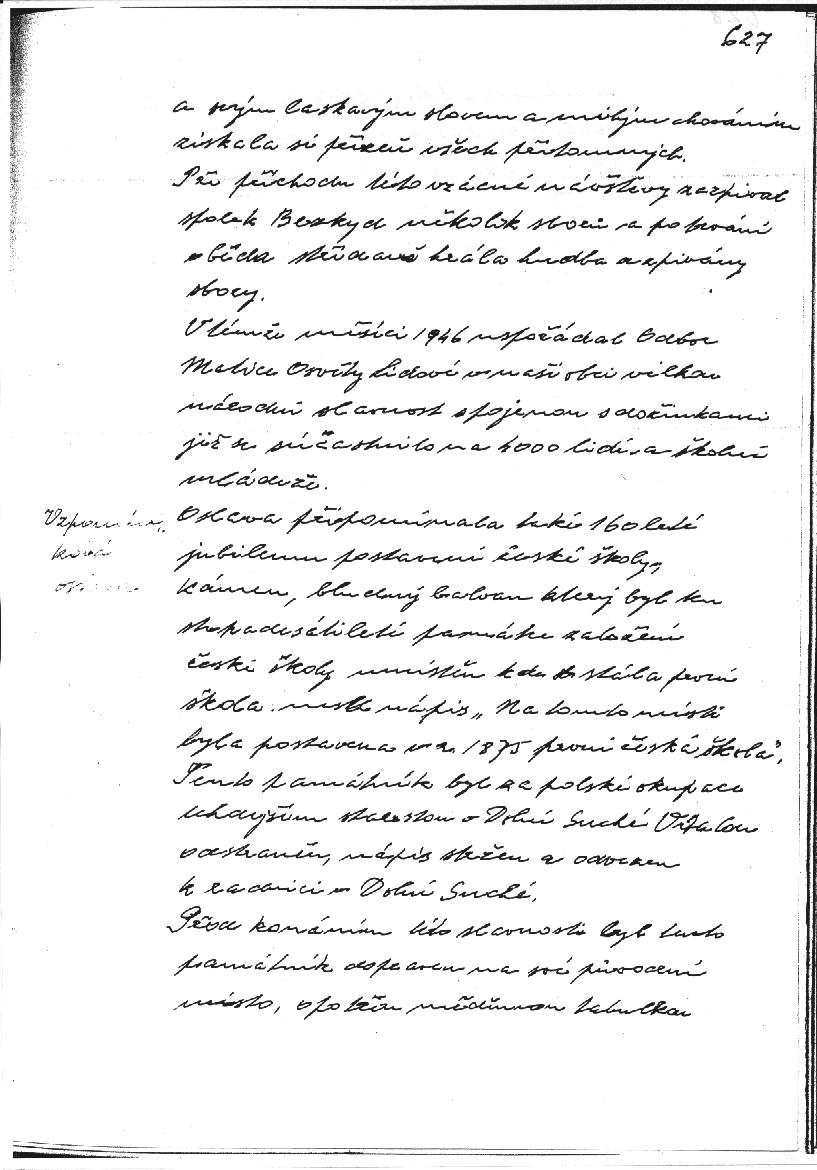 627
a svým laskavým slovem a milým chováním
získala si přízeň všech přítomných.
Při příchodu této vzácné návštěvy zazpíval
spolek Bezkyd několik sborů a po
oběda střídavě hrála hudba a zpívány
sbory.
V témže měsíci 1946 uspořádal Odbor
Matice Osvěty Lidové v naší obci velkou
národní slavnost spojenou s dožinkami
již se súčastnilo na 4000 lidí a školní
mládeže.
Oslava připomínala také 160 leté
jubileum postavení české školy,
Vzpomín-
ková
kámen, bludný balvan který byl ku
stopadesátileté památce založení
české školy umístěn kde stála první
škola. nápis „Na tomto místě
byla postavena v r. 1875 první česká škola".
Tento památník byl za polské okupace
tehdejším starostou v Dolní Suché Vítalou
odstraněn, nápis stržen a odvezen
k radnici v Dolní Suché.
Před konáním této slavnosti byl tento
památník dopraven na své původní
místo, opatřen měděnnou tabulkou